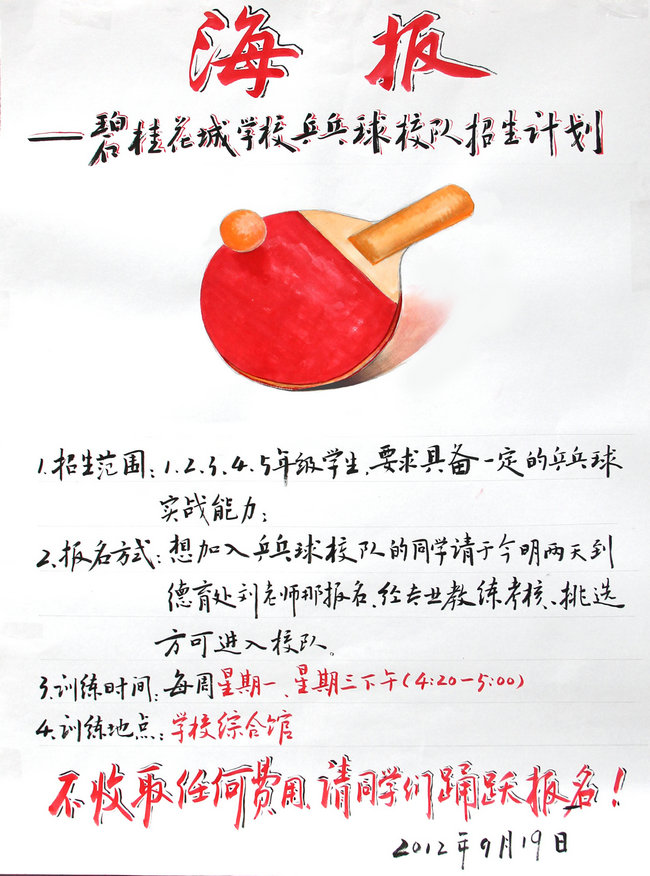 海报
——碧桂花城学校乒乓球校队招生计划
1.招生范围:1.2.3.4.5年级学生,要求具备一定的乒乓球
实战能力;
2.报名方式:想加入乒乓球校队的同学请于今明两天到
德育处刘老师那报名、经专业教练考核、挑选
方可进入校队。
3.训练时间:每周星期一、星期三下午(4:20-5:00)
4.训练地点:学校综合馆
不收取任何费用,请同学们踊跃报名!
2012年9月19日